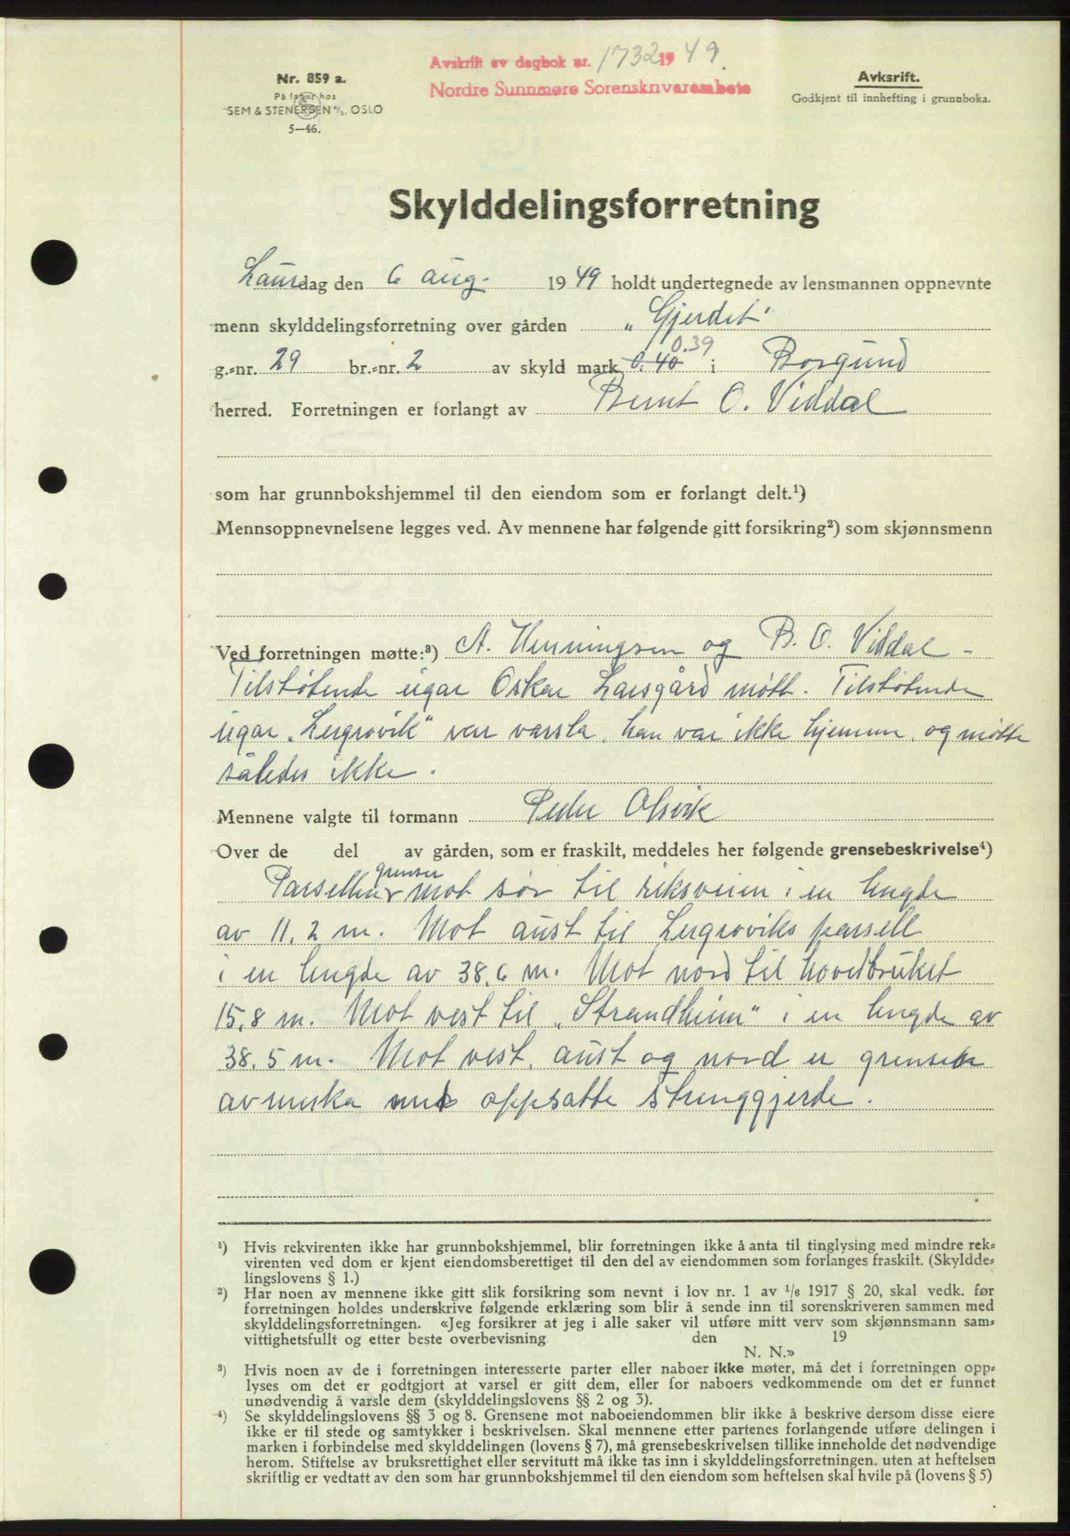 Avskrift av dagbok nr. 1732 1949.
Nordre Sunnmøre Sorenskriverembete
Nr. 859 a.
På lager hos
SEM & STENERSEN A/S. OSLO
5—46.
Avksrift.
Godkjent til innhefting i grunnboka.
Skylddelingsforretning
Laurdag den 6 aug. 1949 holdt undertegnede av lensmannen oppnevnte
menn skylddelingsforretning over gården "Gjerdet"
0.39
g.-nr. 29 br.-nr. 2 av skyld mark 0.40 i Borgund
herred. Forretningen er forlangt av Bernt O. Viddal
som har grunnbokshjemmel til den eiendom som er forlangt delt.¹)
Mennsoppnevnelsene legges ved. Av mennene har følgende gitt forsikring²) som skjønnsmenn
Ved forretningen møtte:³) A. Henningsen og B. O. Viddal -
Tilstøtende eigar Oskar Larsgård møtt. Tilstøtende
eigar "Lergrovik" var varsla, han var ikke hjemme, og møtte
således ikke.
Mennene valgte til formann Peder Alsvik
Over de del av gården, som er fraskilt, meddeles her følgende grensebeskrivelse⁴)
grenser
Parsellen mot sør til riksveien i en lengde
av 11,2 m. Mot aust til Lergroviks parsell
i en lengde av 38,6 m. Mot nord til hovedbruket
15,8 m. Mot vest til "Strandheim" i en lengde av
38,5 m. Mot vest, aust og nord er grensene
avmerka med oppsatte strenggjerde.
¹) Hvis rekvirenten ikke har grunnbokshjemmel, blir forretningen ikke å anta til tinglysing med mindre rek-
virenten ved dom er kjent eiendomsberettiget til den del av eiendommen som forlanges fraskilt. (Skyldde-
lingslovens § 1.)
²) Har noen av mennene ikke gitt slik forsikring som nevnt i lov nr. 1 av 1/6 1917 § 20, skal vedk. før
forretningen holdes underskrive følgende erklæring som blir å sende inn til sorenskriveren sammen med
skylddelingsforretningen. «Jeg forsikrer at jeg i alle saker vil utføre mitt verv som skjønnsmann sam-
vittighetsfullt og etter beste overbevisning den 19
N. N.»
³) Hvis noen av de i forretningen interesserte parter eller naboer ikke møter, må det i forretningen opp-
lyses om det er godtgjort at varsel er gitt dem, eller for naboers vedkommende om det er funnet
unødvendig å varsle dem (skylddelingslovens §§ 2 og 3).
⁴) Se skylddelingslovens §§ 3 og 8. Grensene mot naboeiendommen blir ikke å beskrive dersom disse eiere
ikke er til stede og samtykker i beskrivelsen. Skal mennene etter partenes forlangende utføre delingen i
marken i forbindelse med skylddelingen (lovens § 7), må grensebeskrivelsen tillike inneholde det nødvendige
herom. Stiftelse av bruksrettighet eller servitutt må ikke tas inn i skylddelingsforretningen, uten at heftelsen
skriftlig er vedtatt av den som har grunnbokshjemmel til den eiendom som heftelsen skal hvile på (lovens § 5)